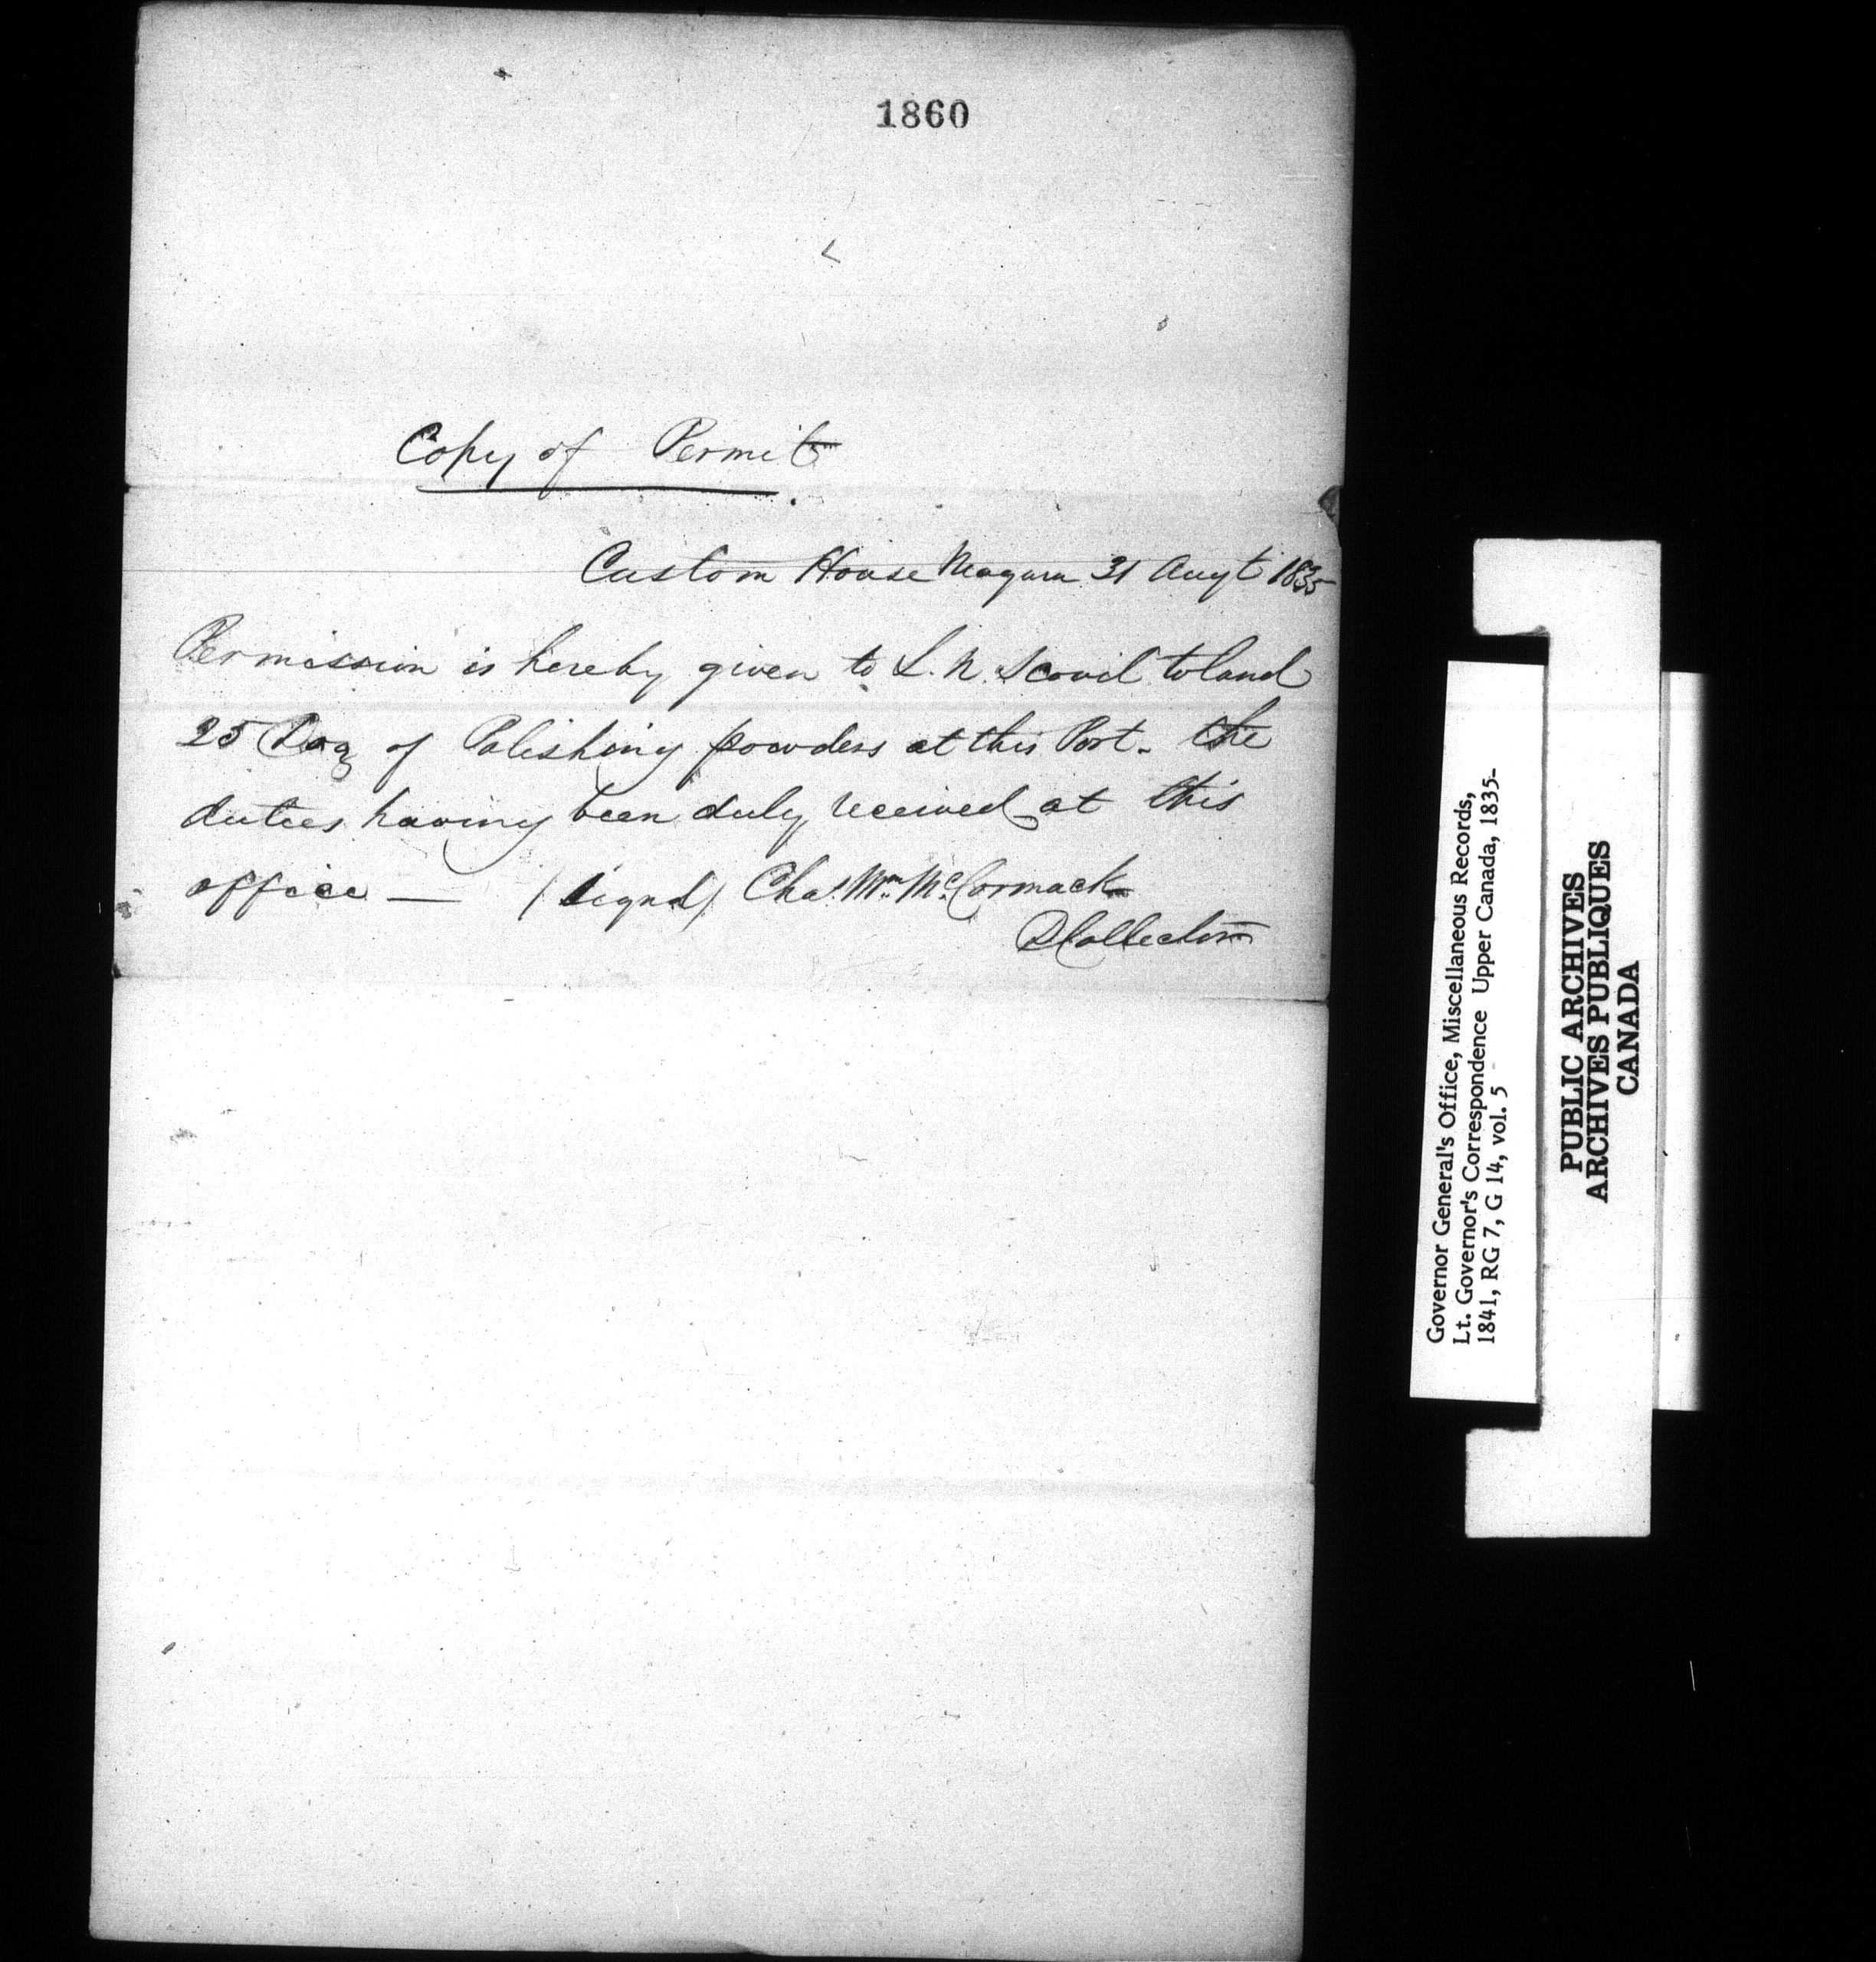 1860
Copy of Permit
Custom House Niagara 31 Augt 1835
Permission is hereby given to L. N. Scovil to land
25 Doz of Polishing powders at this Port. the
duties having been duly received at this
office — (signd) Chas. Wm. McCormack
D Collector
Governor General's Office, Miscellaneous Records,
Lt. Governor's Correspondence Upper Canada, 1835-
1841, RG 7, G 14, vol. 5
PUBLIC ARCHIVES
ARCHIVES PUBLIQUES
CANADA